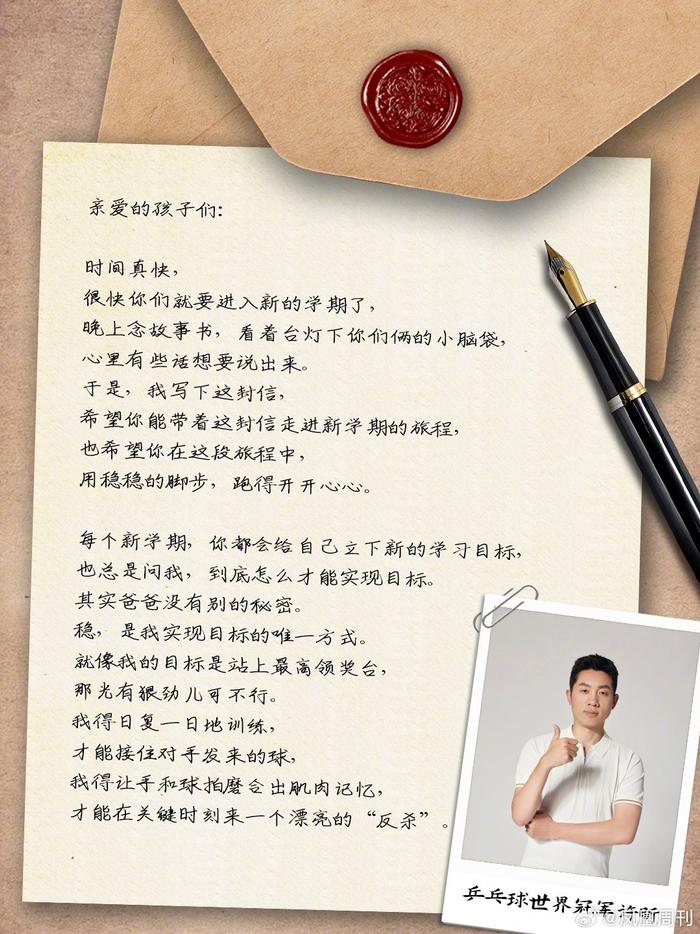 亲爱的孩子们:
时间真快,
很快你们就要进入新的学期了,
晚上念故事书, 看着台灯下你们俩的小脑袋,
心里有些话想要说出来。
于是, 我写下这封信,
希望你能带着这封信走进新学期的旅程,
也希望你在这段旅程中,
用稳稳的脚步, 跑得开开心心。
每个新学期, 你都会给自己立下新的学习目标,
也总是问我, 到底怎么才能实现目标。
其实爸爸没有别的秘密。
稳, 是我实现目标的唯一方式。
就像我的目标是站上最高领奖台,
那光有狠劲儿可不行。
我得日复一日地训练,
才能接住对手发来的球,
我得让手和球拍磨合出肌肉记忆,
才能在关键时刻来一个漂亮的“反杀”。
乒乓球世界冠军许昕
@凤凰周刊